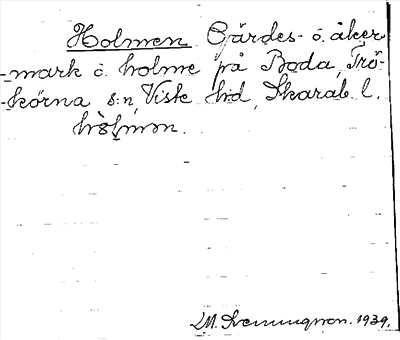 Holmen Gärdes- o. åker
-mark o. holme på Boda, Trö-
-körna s:n, Viste hd, Skarab. l.
hòlmən.
L.M. Svenungson. 1939.